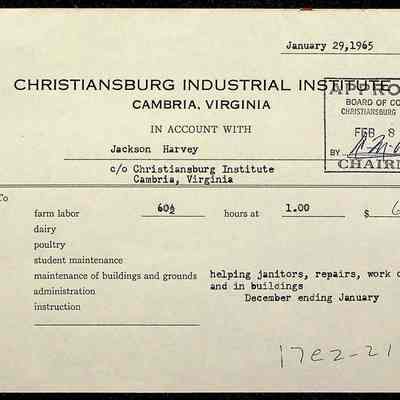 January 29,1965
CHRISTIANSBURG INDUSTRIAL INSTITUTE
CAMBRIA, VIRGINIA
IN ACCOUNT WITH
APPRO
BOARD OF CO
CHRISTIANSBURG
FEB 8
BY
CHAIR
Jackson Harvey
c/o Christiansburg Institute
Cambria, Virginia
To
farm labor 60½ hours at 1.00 $ 6
dairy
poultry
student maintenance
maintenance of buildings and grounds helping janitors, repairs, work o
administration and in buildings
instruction December ending January
17e2-21